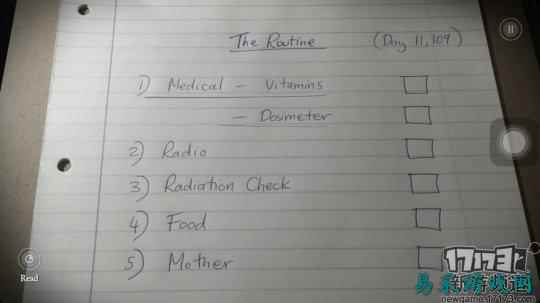 The Routine (Day 11,109)
1) Medical - Vitamins
- Dosimeter
2) Radio
3) Radiation Check
4) Food
5) Mother
Read
17173
newgame.17173.com